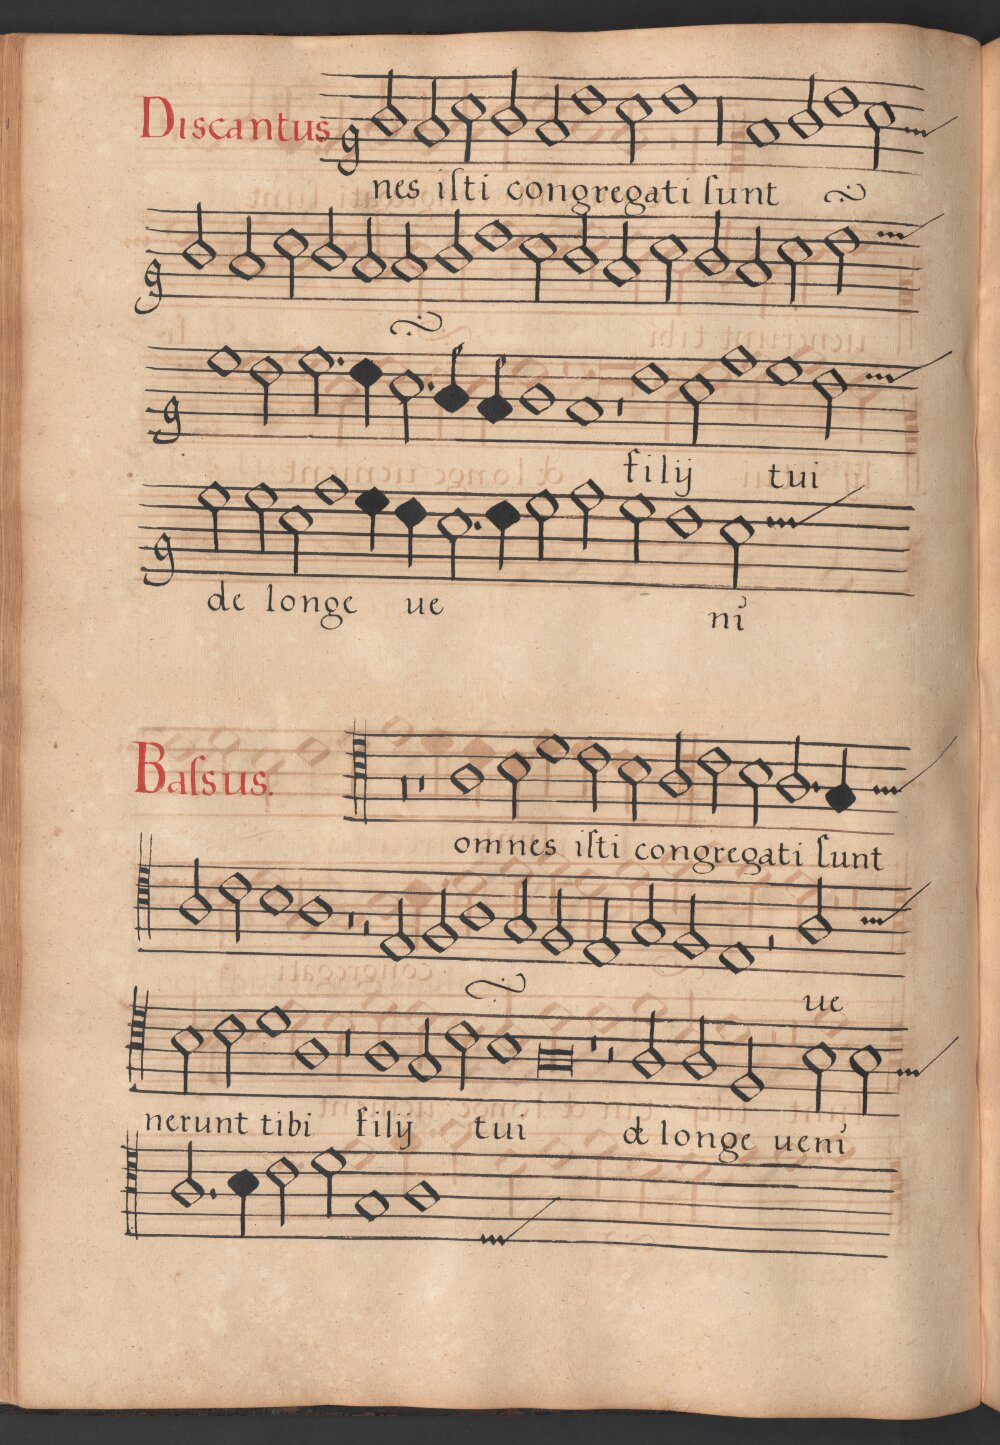 Discantus
nes iſti congregati ſunt
filÿ tui
de longe ue ni
Baſsus.
omnes iſti congregati ſunt
ue
nerunt tibi filÿ tui de longe ueni